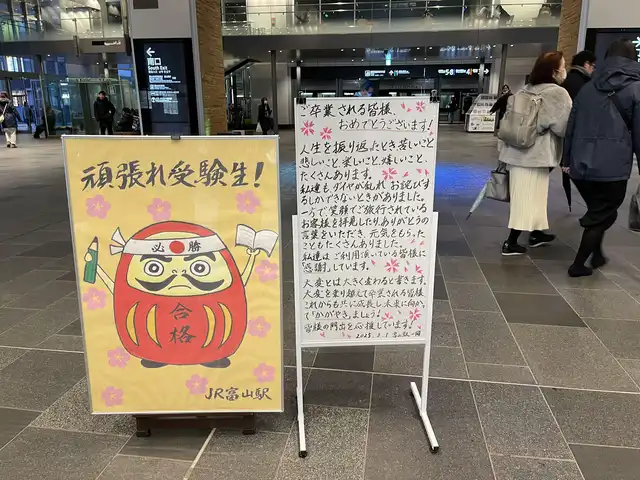 南口
South Exit
頑張れ受験生!
必勝
合格
JR富山駅
ご卒業される皆様、
おめでとうございます!
人生を振り返ったとき苦しいこと
悲しいこと、楽しいこと、嬉しいこと、
たくさんあります。
私達もダイヤが乱れ、お詫びす
るしかできないときがありました。
一方で笑顔でご旅行されている
お客様を拝見したり、ありがとうの
言葉をいただき、元気をもらった
こともたくさんありました。
私達はご利用頂いている皆様に
「感謝」しています。
大変とは大きく変わると書きます。
大変を乗り越えて卒業される皆様
これからも共に成長し未来に向め
て「かがやき」ましょう!
皆様の門出を応援しています!